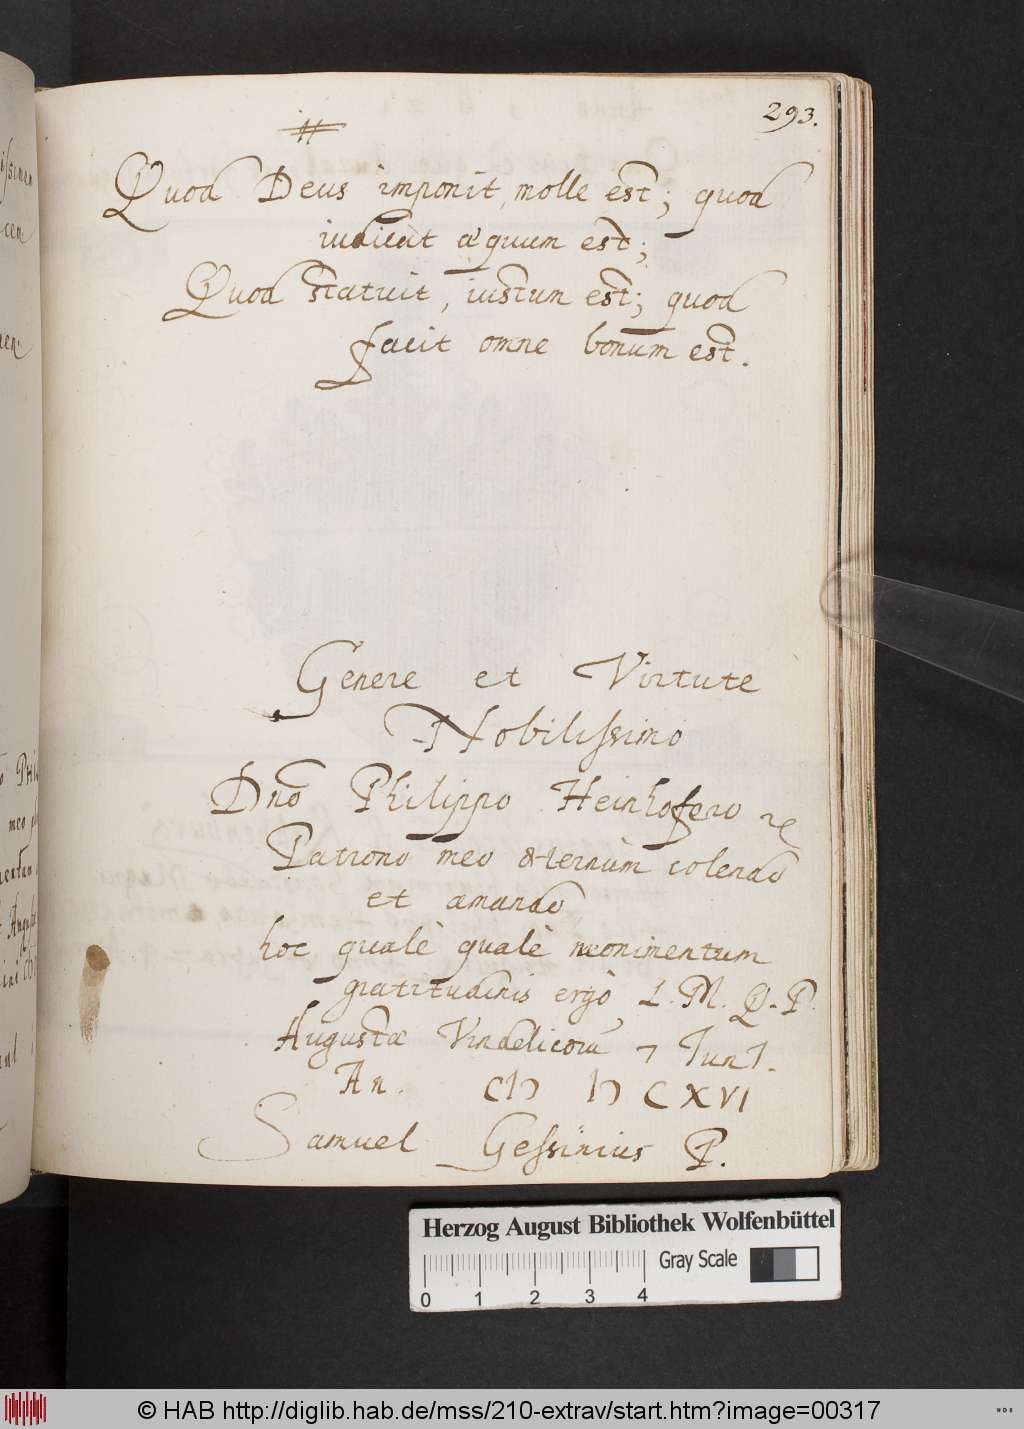 293.
Quod Deus imponit, molle est; quod
iudicat æquum est;
Quod statuit, iustum est; quod
facit omne bonum est.
Genere et Virtute
Nobilissimo
Dnō Philippo Heinhofero
Patrono meo æternùm colendo
et amando
hoc qualè qualè monimentum
gratitudinis ergò L. M. Q. P.
Augustæ Vindelicorū 7 Junÿ.
An. CIↃ IↃ CXVI
Samuel Gessinius P.
Herzog August Bibliothek Wolfenbüttel
Gray Scale
0 1 2 3 4
© HAB http://diglib.hab.de/mss/210-extrav/start.htm?image=00317